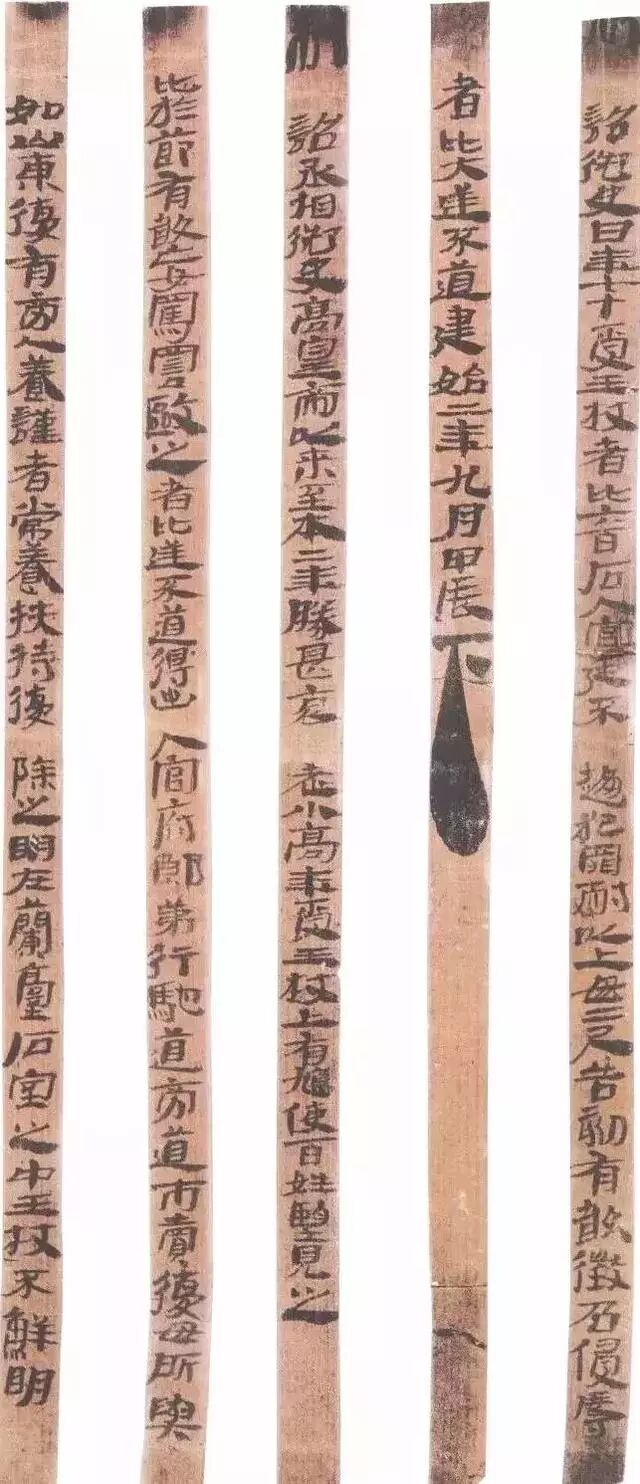 制詔御史曰年七十受王杖者比六百石入官廷不趨犯罪耐以上毋二尺告劾有敢徵召侵辱
者比大逆不道建始二年九月甲辰下
制詔丞相御史高皇帝以來至本二年勝甚哀老小高年受王杖上有鳩使百姓望見之
比於節有敢妄罵詈毆之者比逆不道得出入官府郎第行馳道旁道市賣復毋所與
如山東復有旁人養謹者常養扶持復除之明在蘭臺石室之中王杖不鮮明